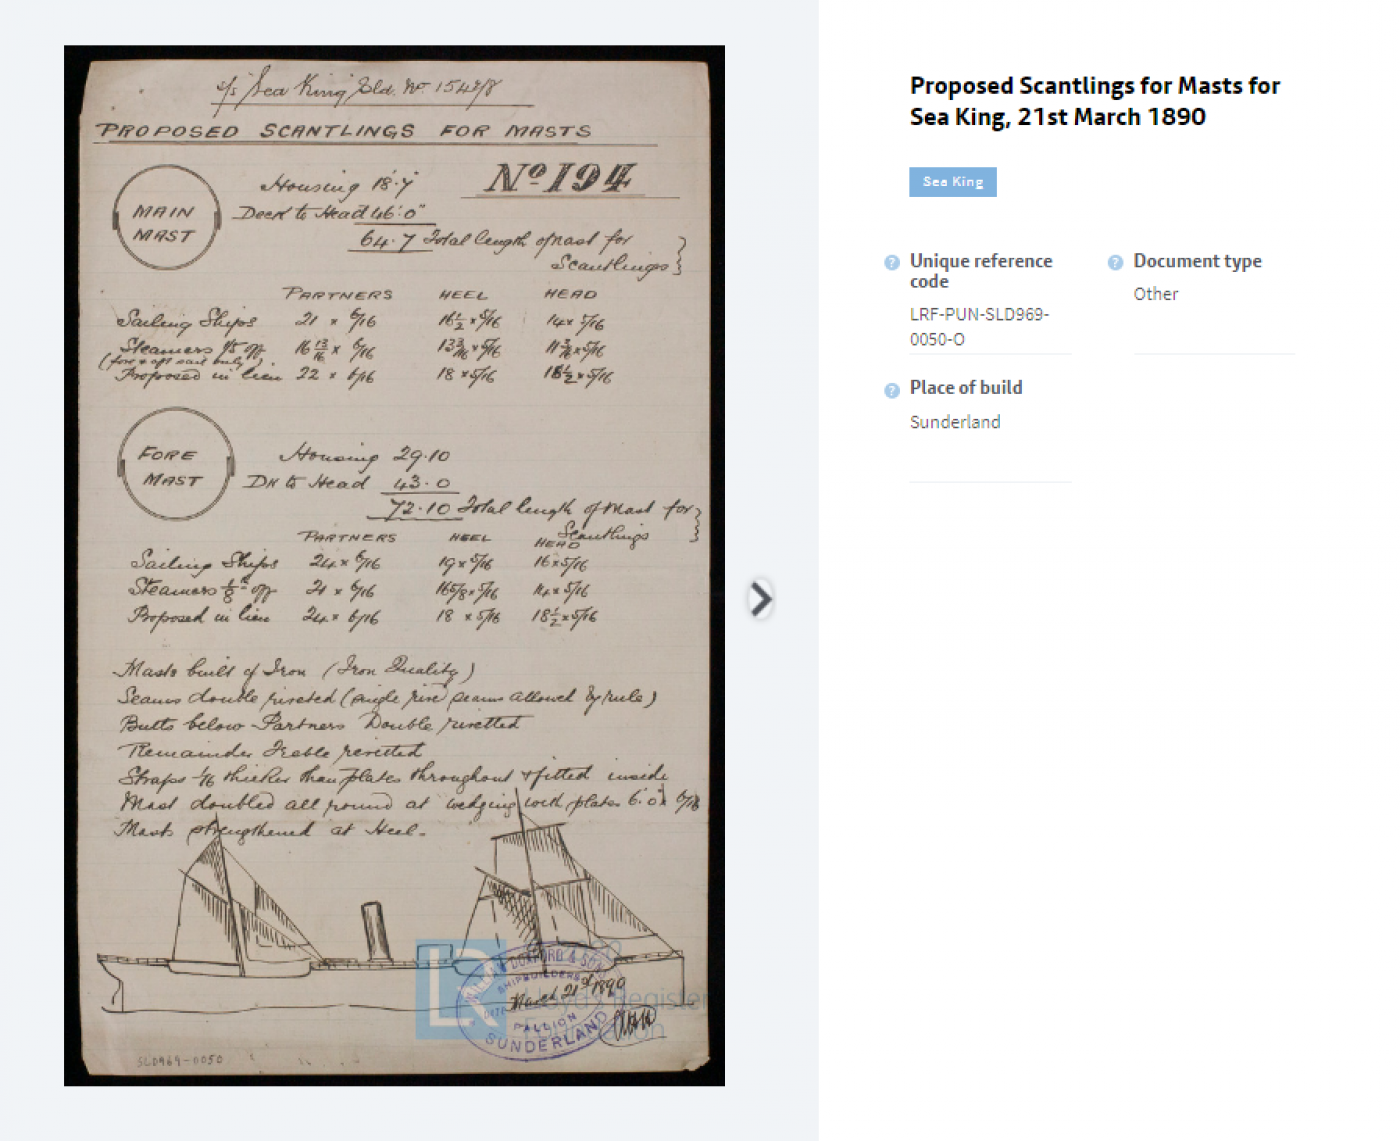 s/s Sea King Sld. No. 154 7/8
PROPOSED SCANTLINGS FOR MASTS
No 194
MAIN MAST
Housing 18.7
Deck to Head 46'.0"
64.7 Total length of mast for
Scantlings
PARTNERS HEEL HEAD
Sailing Ships 21 x 6/16 16½ x 5/16 14 x 5/16
Steamers 1/5 off 16 13/16 x 6/16 13 3/16 x 5/16 11 3/16 x 5/16
(fore & aft sail only)
Proposed in lieu 22 x 6/16 18 x 5/16 18½ x 5/16
FORE MAST
Housing 29.10
Dk to Head 43.0
72.10 Total length of Mast for
Scantlings
PARTNERS HEEL HEAD
Sailing Ships 24 x 6/16 19 x 5/16 16 x 5/16
Steamers 1/8th off 21 x 6/16 16 5/8 x 5/16 14 x 5/16
Proposed in lieu 24 x 6/16 18 x 5/16 18½ x 5/16
Masts built of Iron (Iron Quality)
Seams double riveted (single rivd seams allowed by rule)
Butts below Partners Double rivetted
Remainder Treble rivetted
Straps 1/16 thicker than plates throughout & fitted inside
Mast doubled all round at wedging with plates 6'.0" x 6/16
Masts strengthened at Heel.
LR
Lloyd's Register
Foundation
WILLIAM DOXFORD & SONS
SHIPBUILDERS
DATE March 21st 1890
PALLION
SUNDERLAND
SLD969-0050
Proposed Scantlings for Masts for
Sea King, 21st March 1890
Sea King
Unique reference
code
LRF-PUN-SLD969-
0050-O
Document type
Other
Place of build
Sunderland